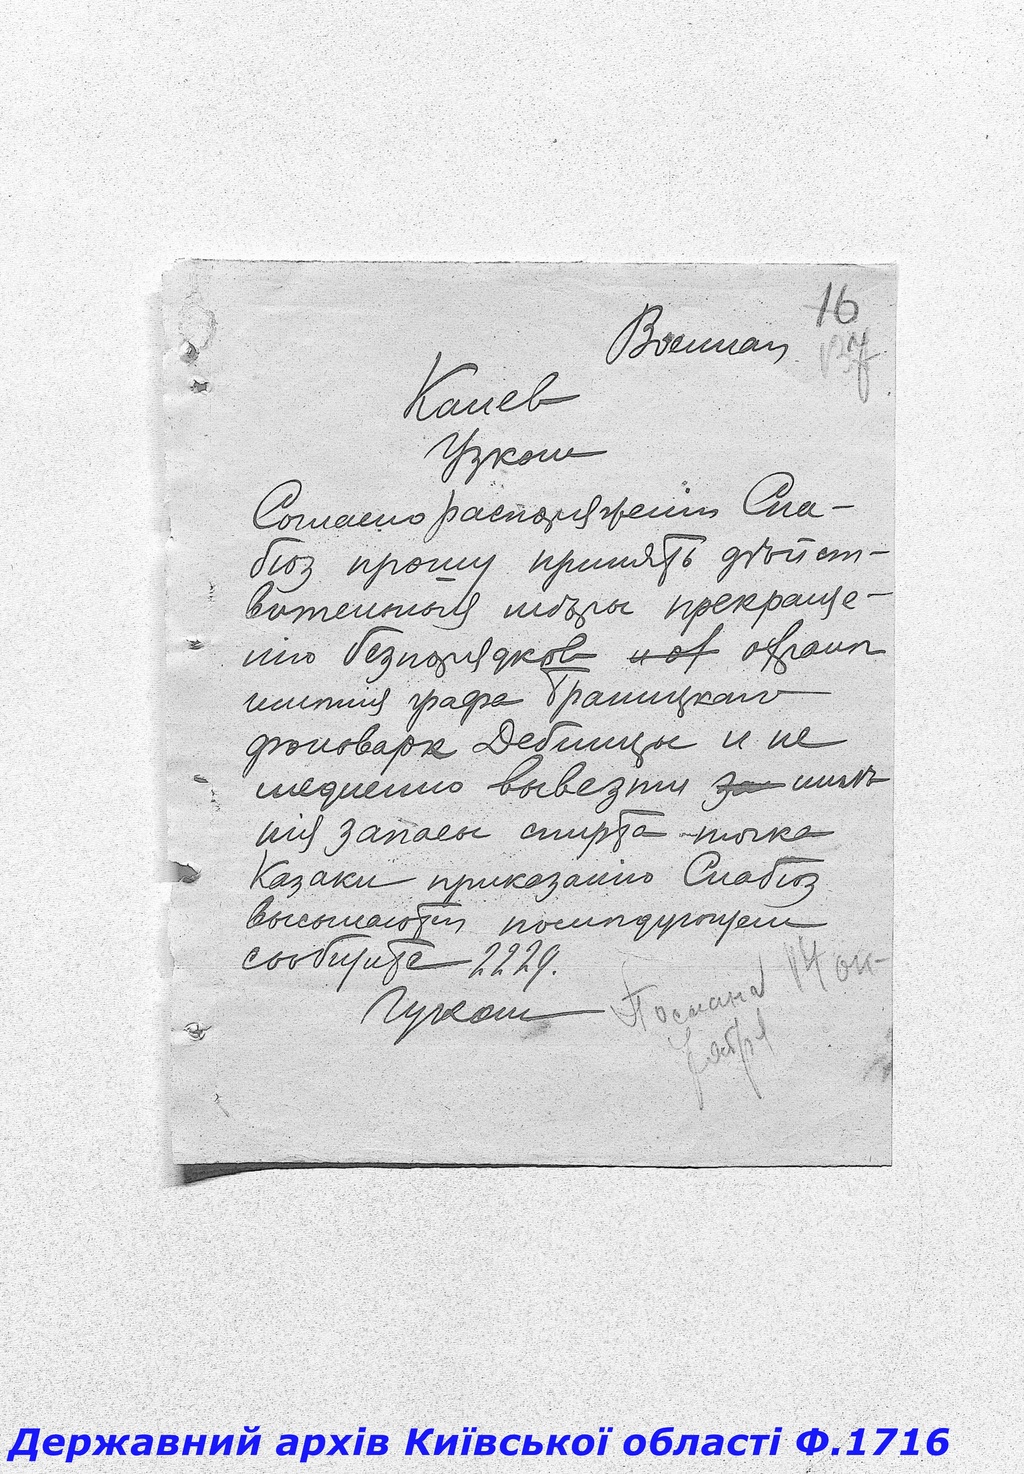 16
137
Военная
Канев
Узком
Согласно распоряжению Сна-
бюз прошу принять дѣйст-
вительныя мѣры прекраще-
нию безпорядков и ох охраны
имения графа Браницкаго
фольварк Дебницы и не
медленно вывезти за имѣю
щия запасы спирта точка
Казаки приказанию Снабюз
высылаются последующем
сообщите 2229.
Губком
Послана 14 ок-
тября
Державний архів Київської області Ф.1716